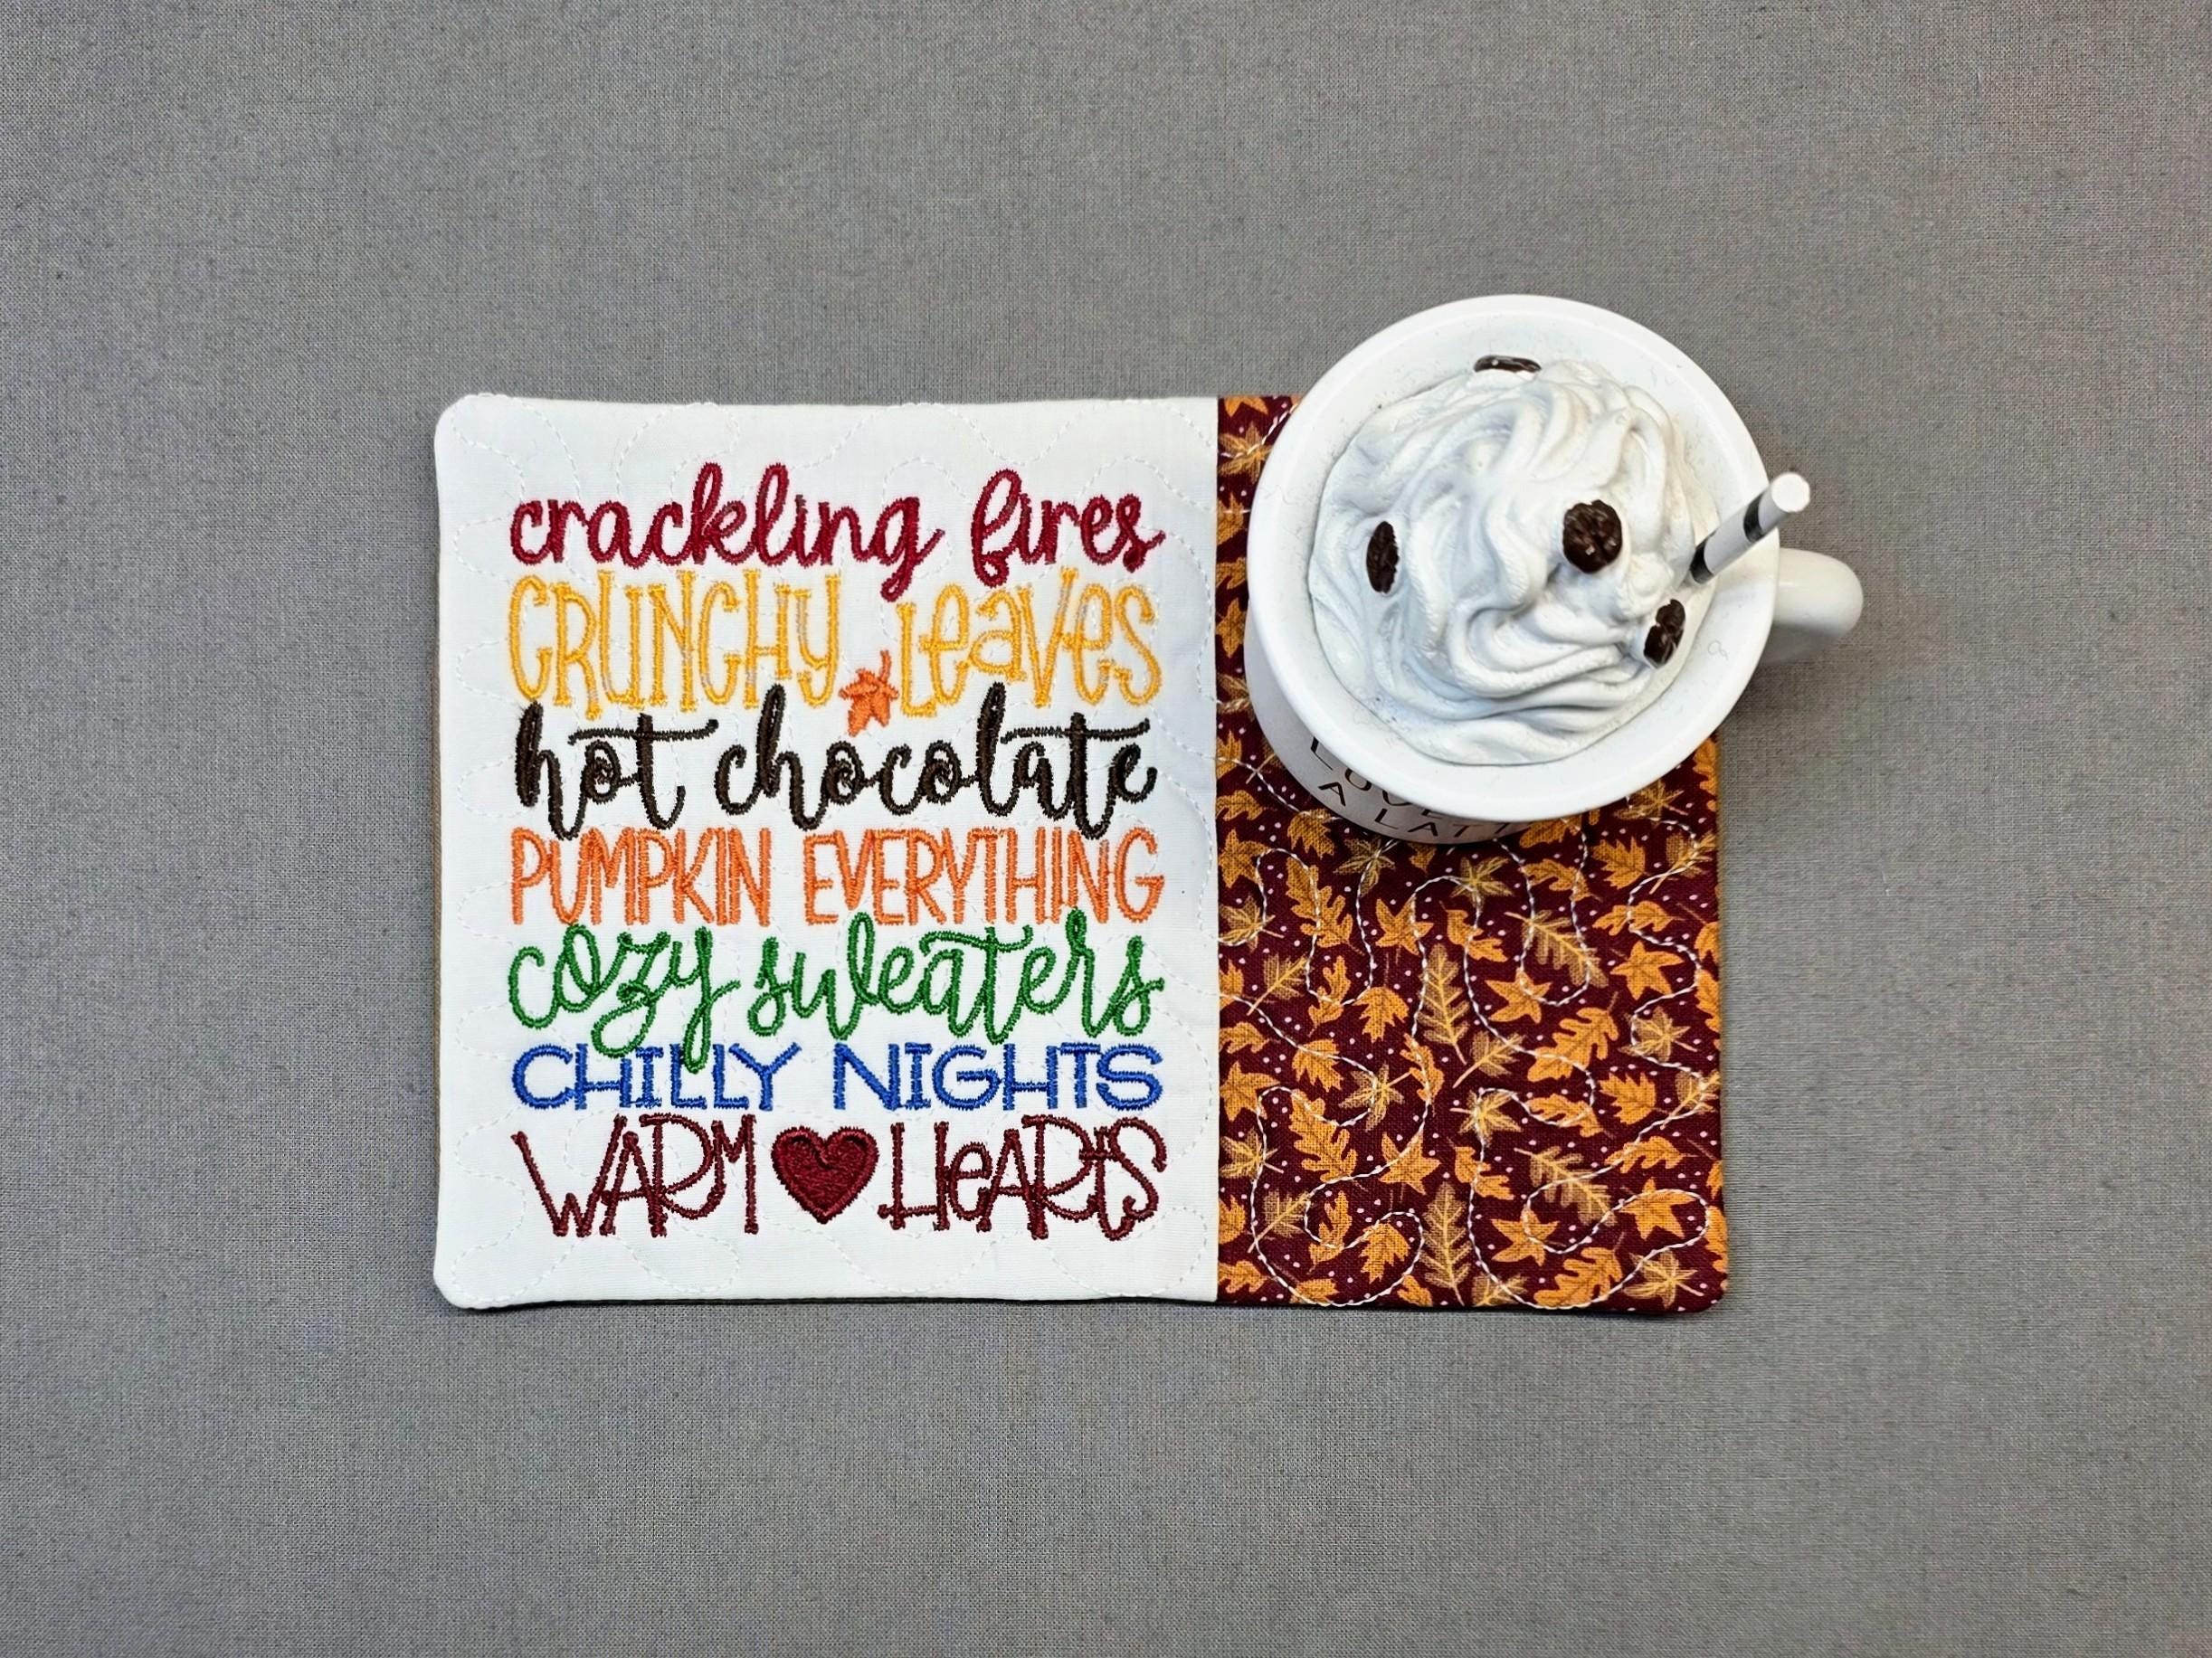 crackling fires
CRUNCHY Leaves
hot chocolate
PUMPKIN EVERYTHING
cozy sweaters
CHILLY NIGHTS
WARM HeARtS
A LATT